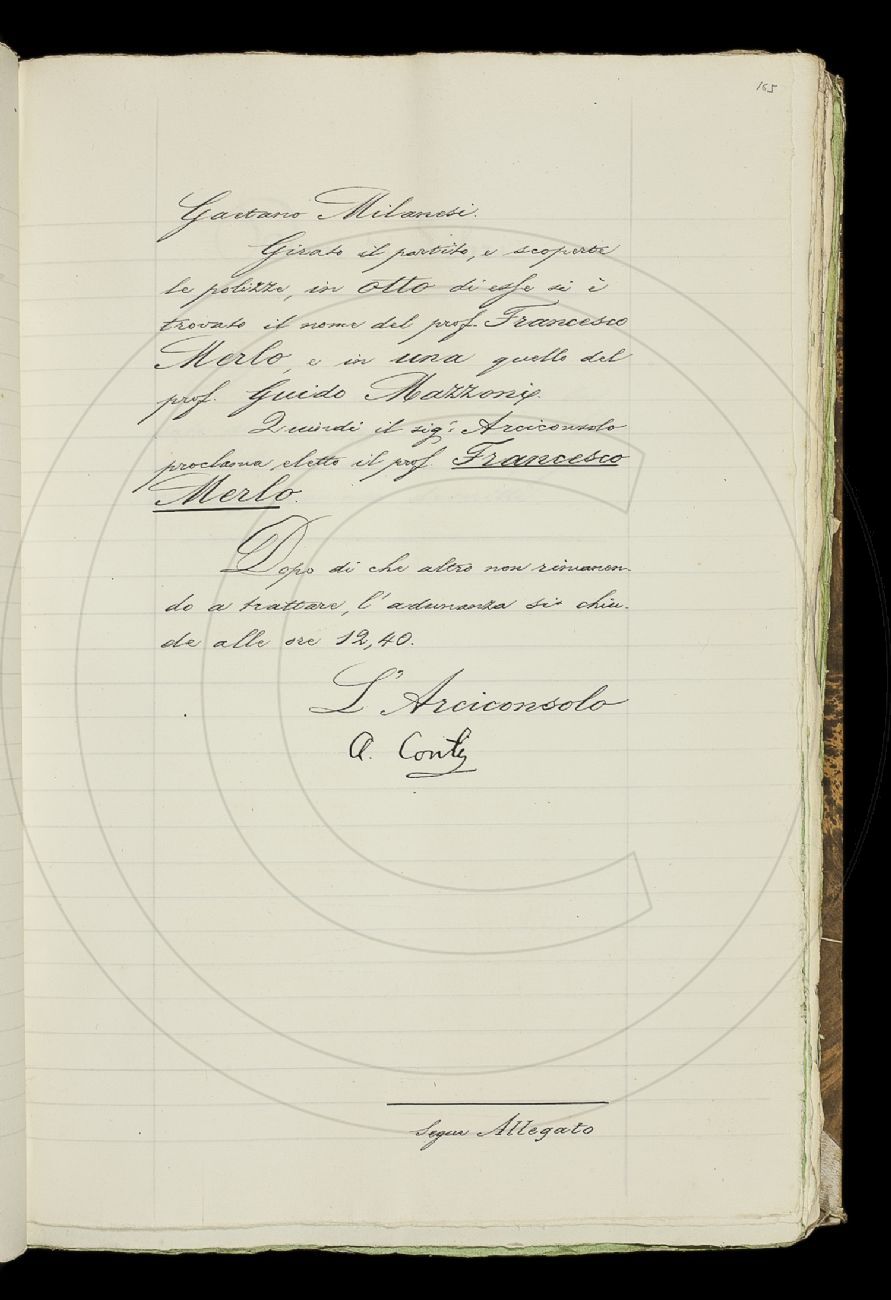 165
Gaetano Milanesi.
Girato il partito, e scoperte
le polizze, in otto di esse si è
trovato il nome del prof. Francesco
Merlo, e in una quello del
prof. Guido Mazzoni.
Quindi il sig.r Arciconsolo
proclama eletto il prof. Francesco
Merlo.
Dopo di che altro non rimanen-
do a trattare, l'adunanza si chiu-
de alle ore 12,40.
L'Arciconsolo
A. Conti
Segue Allegato